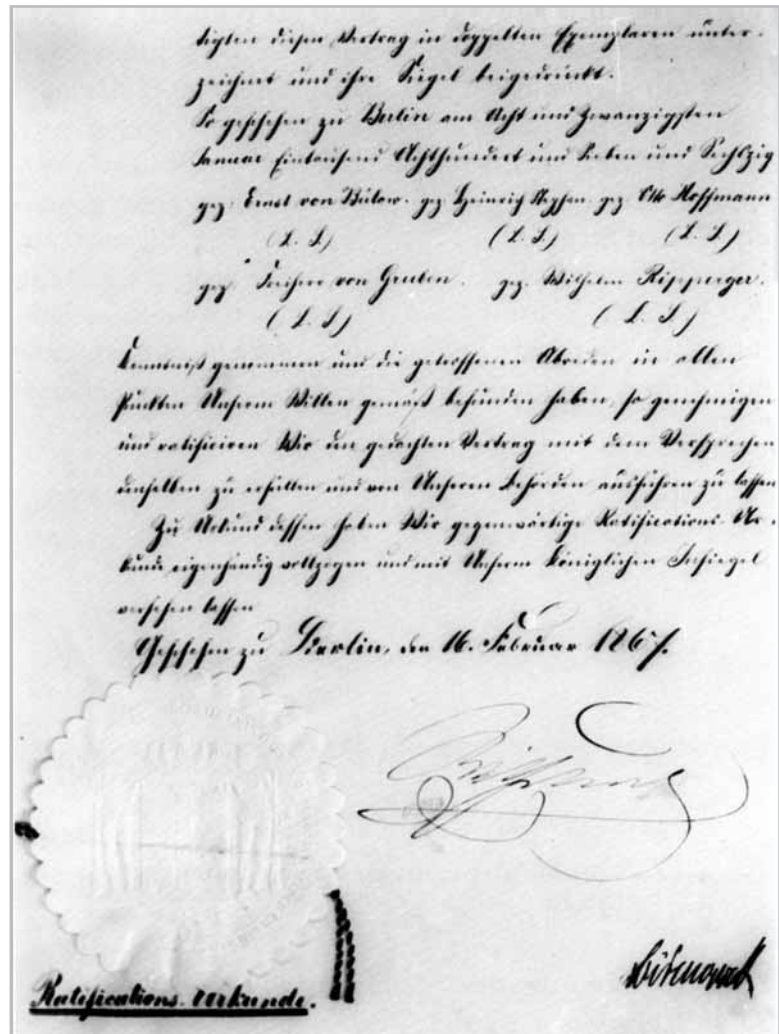 tigten diesen Vertrag in doppelten Exemplaren unter-
zeichnet und ihre Siegel beigedrückt.
So geschehen zu Berlin am Acht und Zwanzigsten
Januar Eintausend Achthundert und Sieben und Sechszig
gez. Ernst von Bülow. gez. Heinrich gez. Otto Hoffmann
(L. S.) (L. S.) (L. S.)
gez. Freiherr von Gruben. gez. Wilhelm Ripperger.
(L. S.) (L. S.)
Kenntniß genommen und die getroffenen Abreden in allen
Punkten Unserm Willen gemäß befunden haben, so genehmigen
und ratificiren Wir den gedachten Vertrag mit dem Versprechen
denselben zu erfüllen und von Unseren Behörden ausführen zu lassen
Zu Urkund dessen haben Wir gegenwärtige Ratifications-Ur-
kunde eigenhändig vollzogen und mit Unserm Königlichen Insiegel
versehen lassen
Geschehen zu Berlin, den 16. Februar 1867.
Wilhelm
Bismarck
Ratifications-Urkunde.